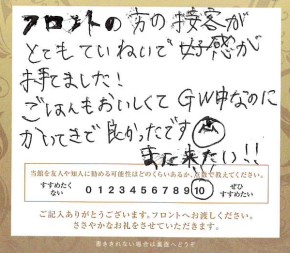 フロントの方の接客が
とてもていねいで好感が
持てました!
ごはんもおいしくてGW中なのに
かいてきで良かったです
また来たい!!
当館を友人や知人に勧める可能性はどのくらいあるか、点数で教えてください。
すすめたくない 0 1 2 3 4 5 6 7 8 9 10 ぜひすすめたい
ご記入ありがとうございます。フロントへお渡しください。
ささやかなお礼をさせていただきます。
書ききれない場合は裏面へどうぞ